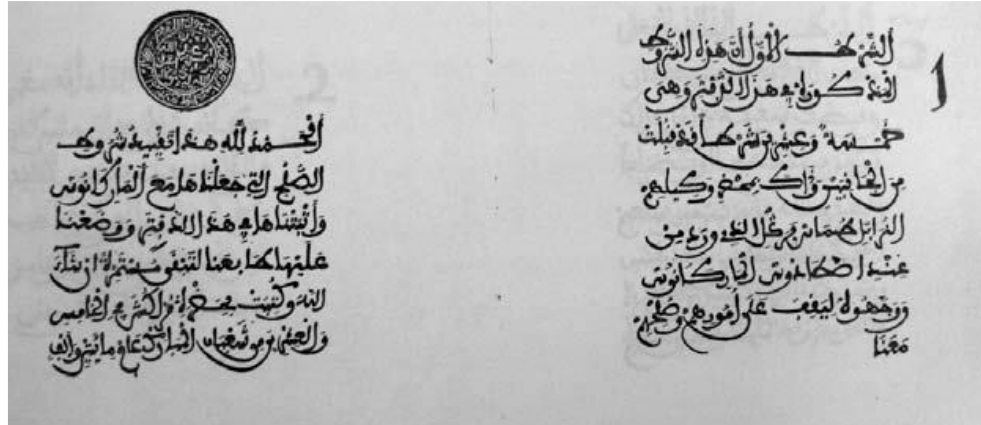 ١
الشرط الاول ان هذه الشروط
المذكورة في هذا الدفتر وهي
خمسة وعشرين شرطا قد قبلت
من الجانبين وذلك بمحضر وكيلهم
الترابل طماس بركل الذي ورد من
عند اصطادوس الماركانوس
ووجهوه ليقف على امورهم وصلحهم
معنا
الحمد لله هذا تقييد شروط
الصلح التي جعلناها مع الماركانوس
واثبتناها في هذا الدفتر ووضعنا
عليها طابعنا لتبقى مستمرة ان شاء
الله وكتبت بحضرة مراكش في الخامس
والعشرين من شعبان المبارك عام مايتين والف